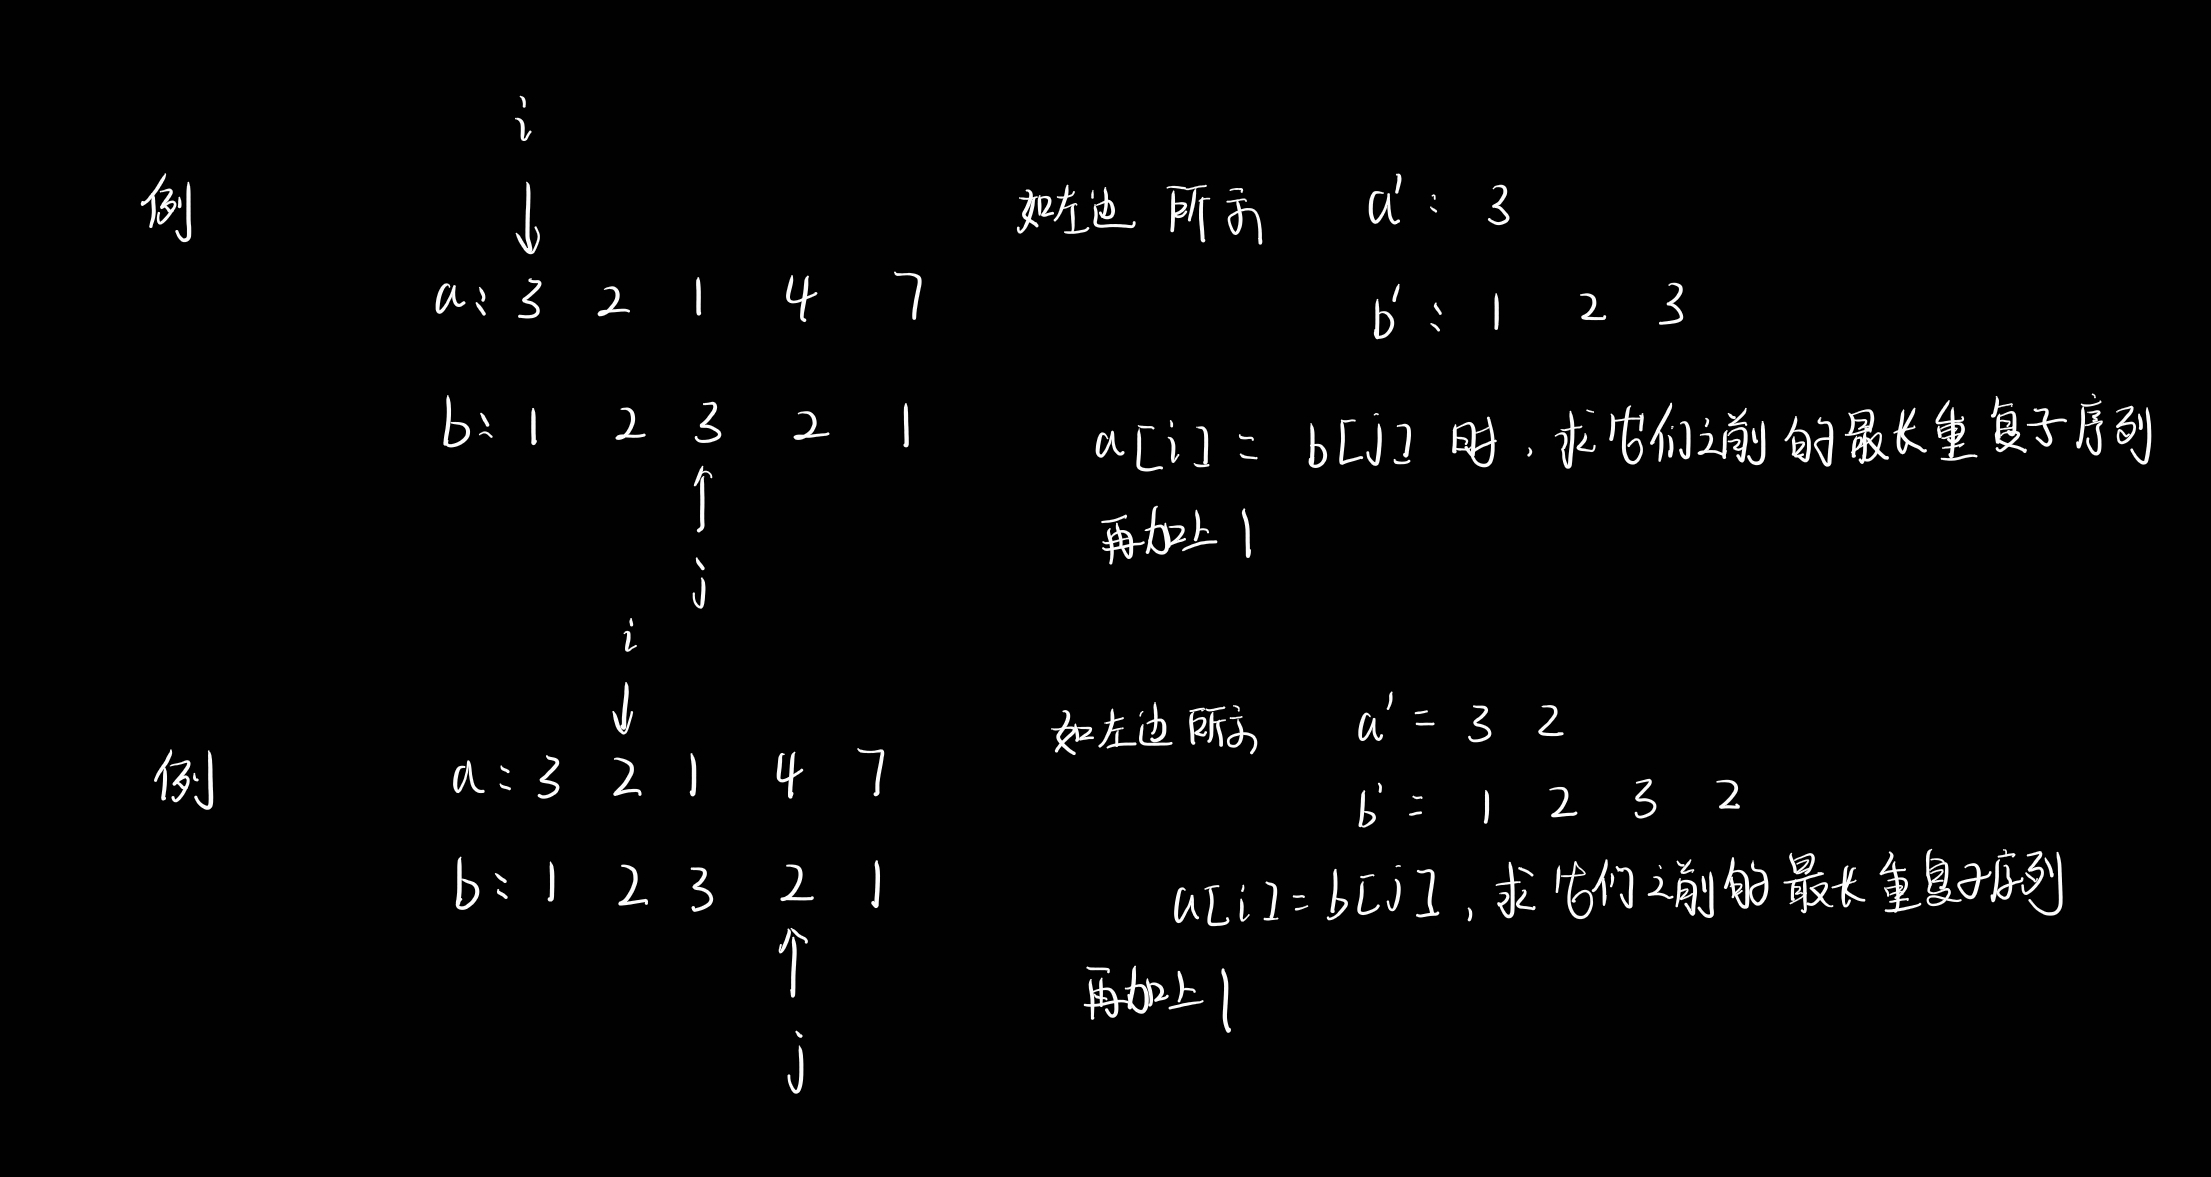 i
例
↓
a: 3 2 1 4 7
b: 1 2 3 2 1
↑
j
如左边所示 a': 3
b': 1 2 3
a[i] = b[j] 时, 求它们之前的最长重复子序列
再加上 1
i
↓
例
a: 3 2 1 4 7
b: 1 2 3 2 1
↑
j
如左边所示 a' = 3 2
b' = 1 2 3 2
a[i] = b[j], 求它们之前的最长重复子序列
再加上 1